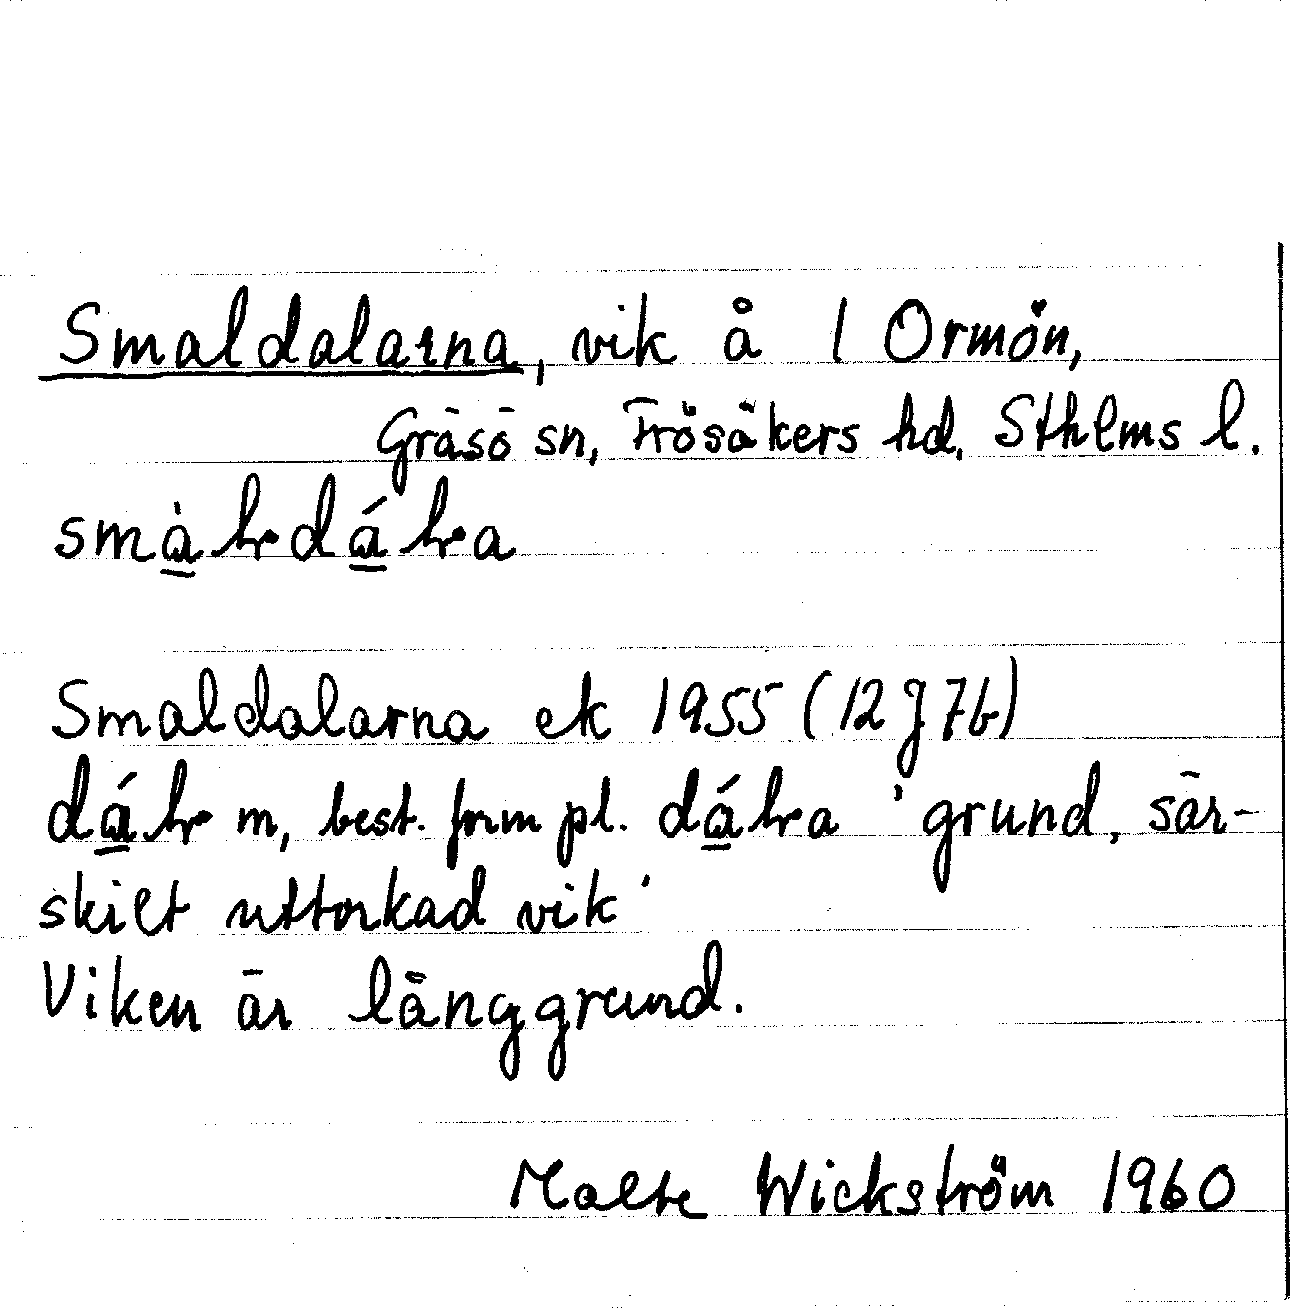 Smaldalarna, vik å 1 Ormön,
Gräsö sn, Frösåkers hd, Sthlms l.
Smaldalarna ek 1955 (12 J 7b)
m, best. form pl. 'grund, sär-
skilt uttorkad vik'
Viken är långgrund.
Malte Wickström 1960